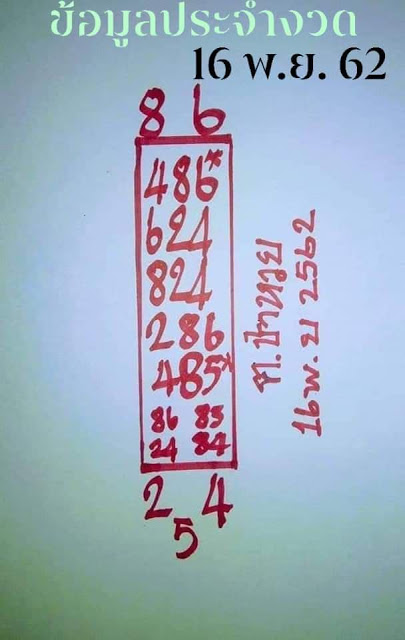 ข้อมูลประจำงวด
16 พ.ย. 62
8 6
486*
624
824
286
485*
86 85
24 84
2 4
5
16 พ.ย 2562